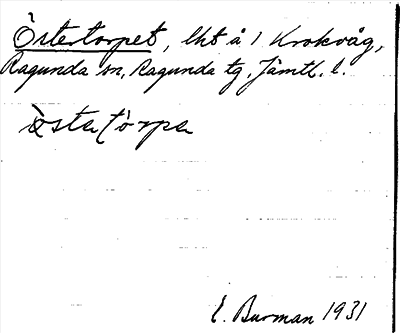 Östertorpet, lht å 1 Krokvåg,
Ragunda sn, Ragunda tg, Jämtl. l.
östatörpa
E. Burman 1931